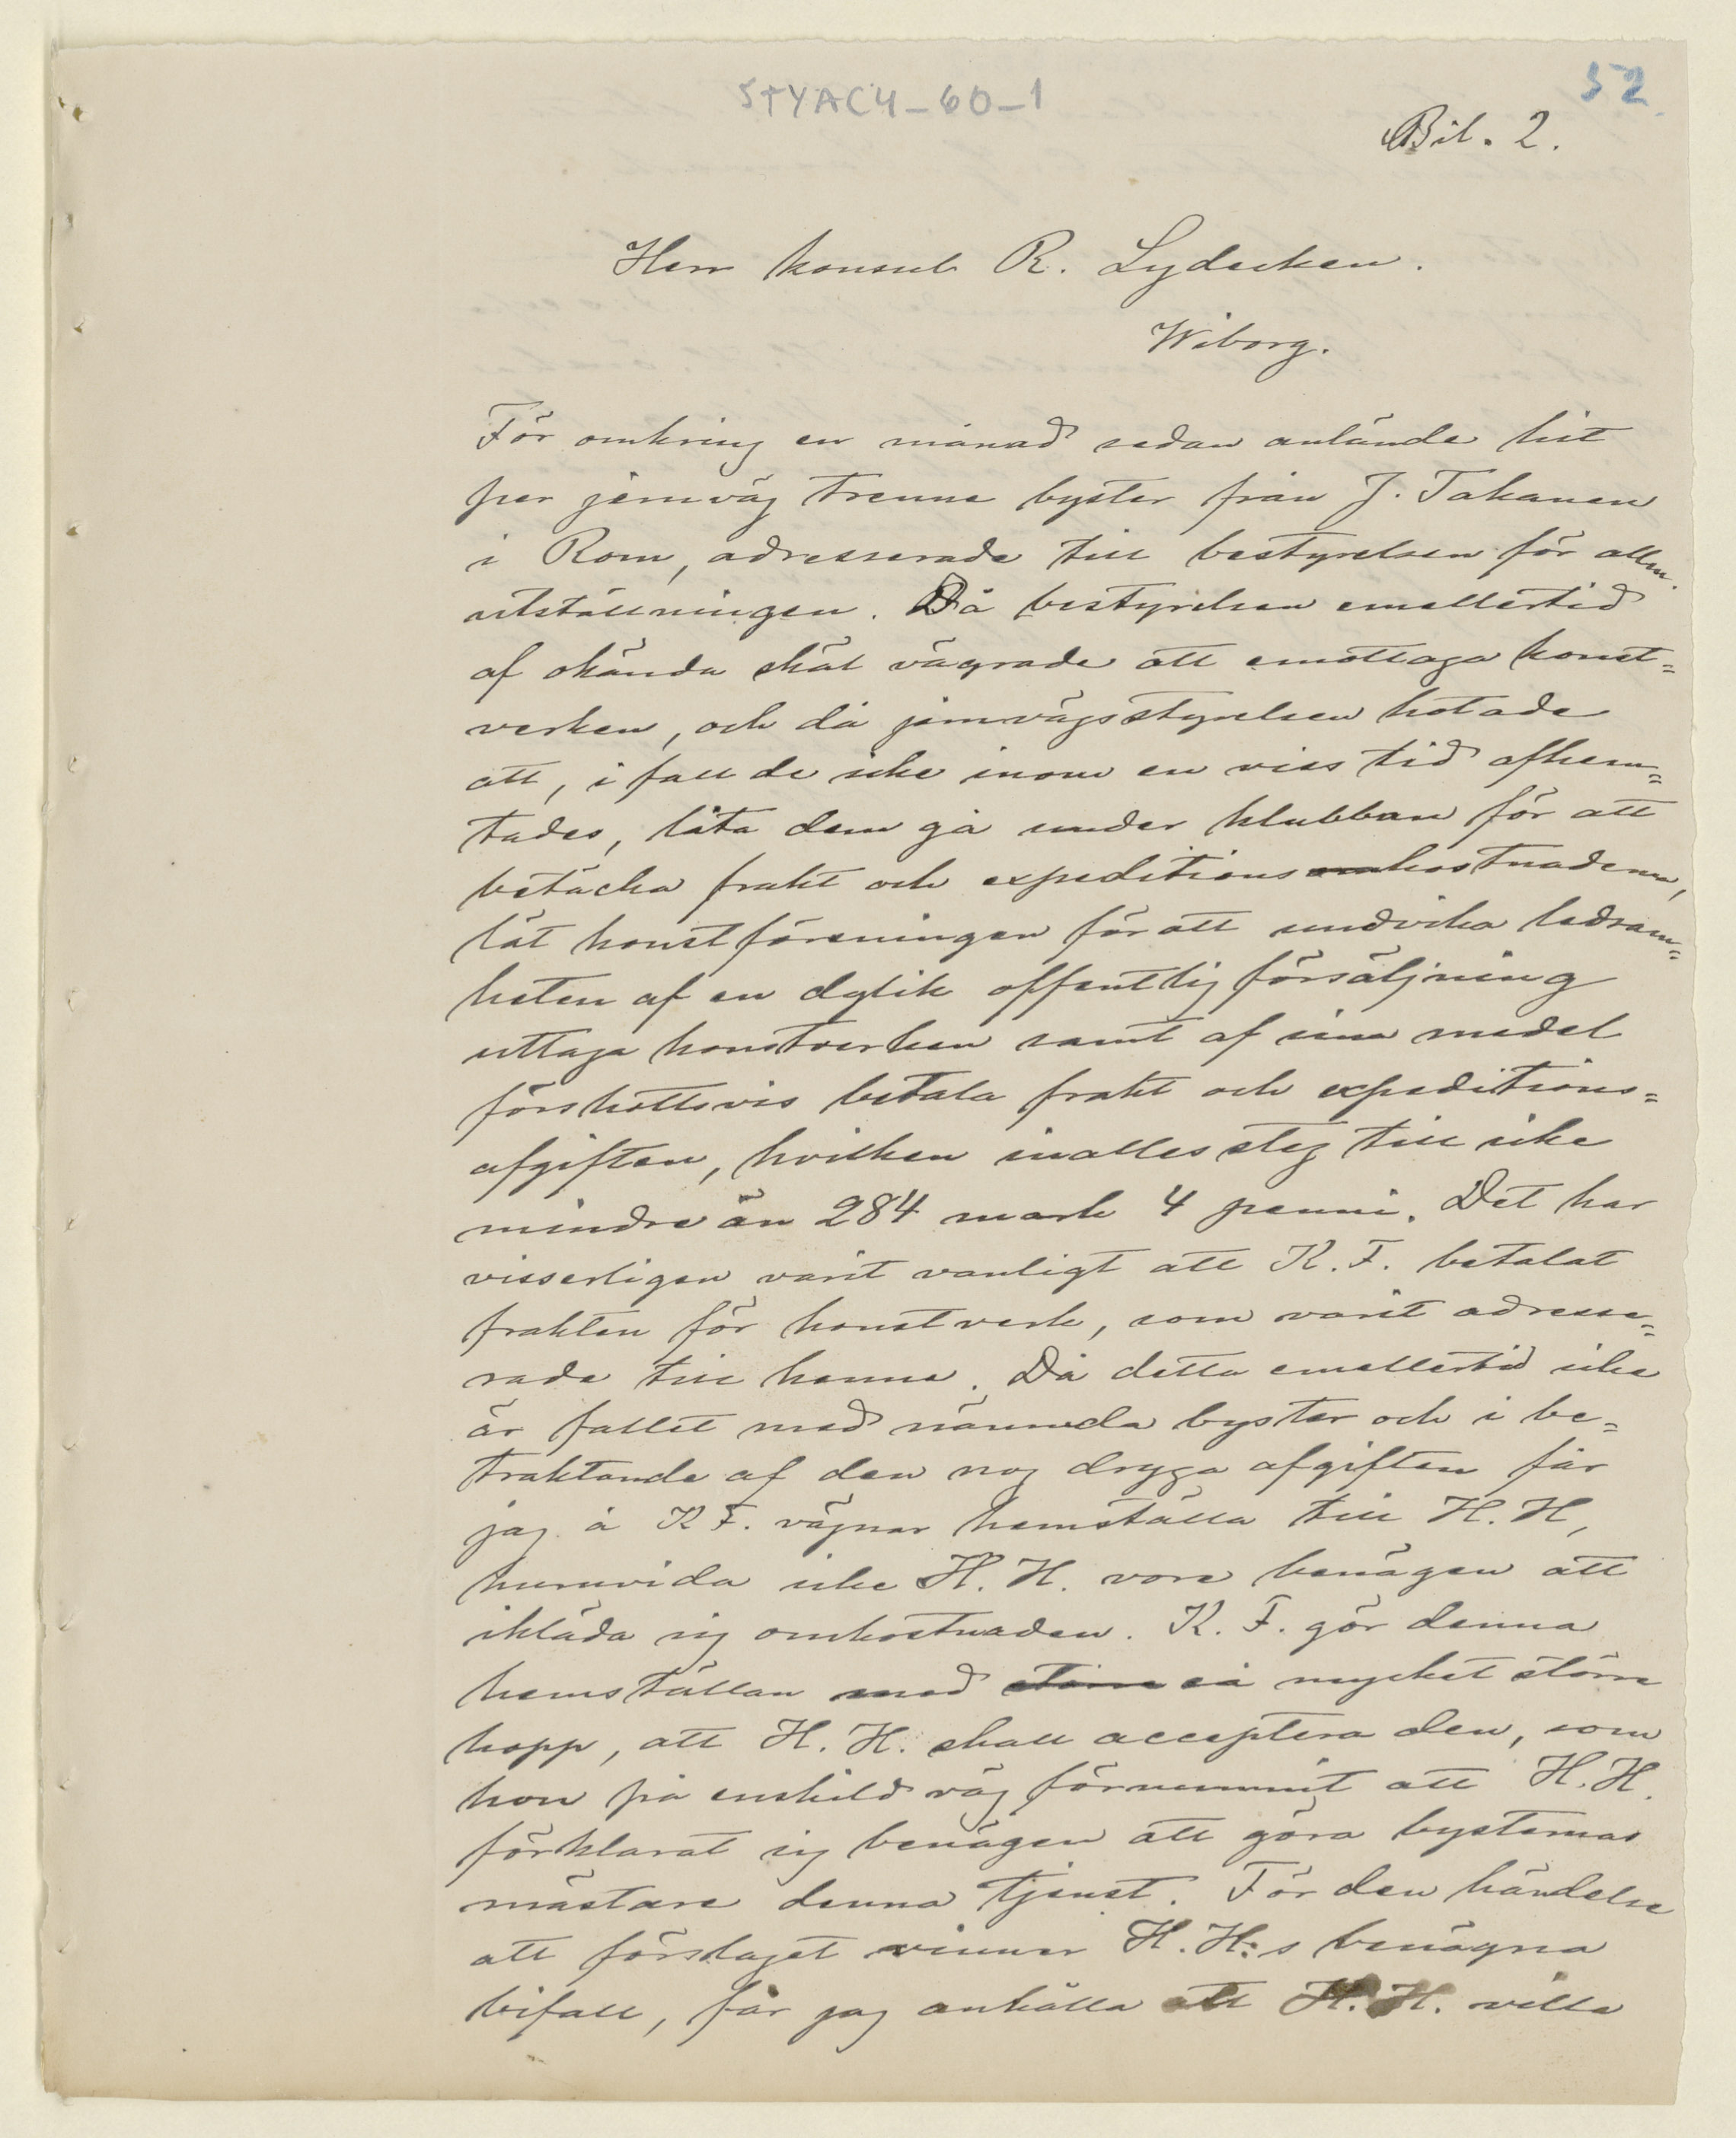 STYAC4-60-1
52
Bil. 2.
Herr konsul R. Lydecken.
Wiborg.
För omkring en månad sedan anlände hit
per jernväg trenne byster från J. Takanen
i Rom, adresserade till bestyrelsen för allm.
utställningen. Då bestyrelsen emellertid
af okända skäl vägrade att emottaga konst=
verken, och då jernvägsstyrelsen hotade
att, i fall de icke inom en viss tid afhem=
tades, låta dem gå under klubban för att
betäcka frakt och expeditionskostnaderna,
lät konstföreningen för att undvika ledsam=
heten af en dylik offentlig försäljning
uttaga konstverken samt af sina medel
förskottsvis betala frakt och expeditions=
afgiften, hvilken inalles steg till icke
mindre än 284 mark 4 penni. Det har
visserligen varit vanligt att K. F. betalat
frakten för konstverk, som varit adresse=
rade till henne. Då detta emellertid icke
är fallet med nämnda byster och i be=
traktande af den nog dryga afgiften får
jag å K F. vägnar hemställa till H. H,
huruvida icke H. H. vore benägen att
ikläda sig omkostnaden. K. F. gör denna
hemställan med större så mycket större
hopp, att H. H. skall acceptera den, som
hon på enskild väg förnummit att H. H.
förklarat sig benägen att göra bysternas
mästare denna tjenst. För den händelse
att förslaget vinner H. H:s benägna
bifall, får jag anhålla att H. H. ville